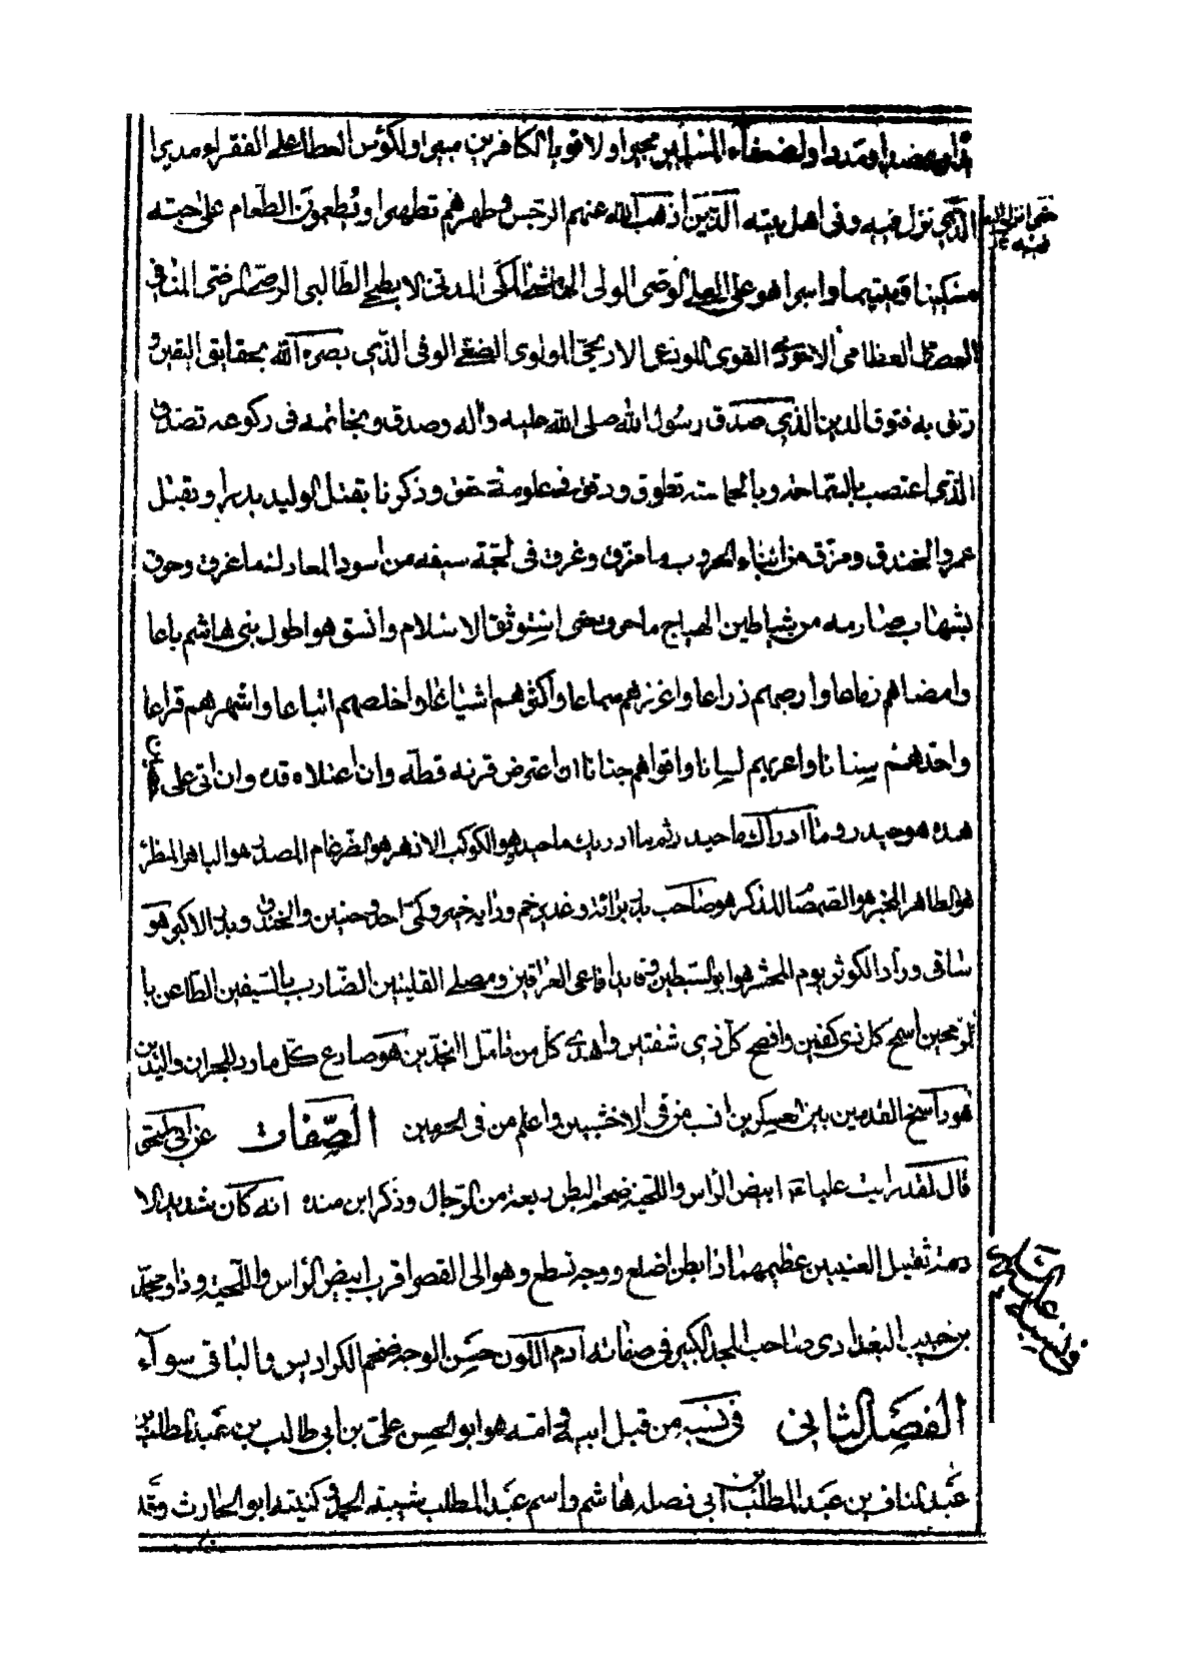 ولضعفاء المسلمين مجيرا ولاقوياء الكافرين مبيرا ولكؤس العطاء على الفقراء مديرا
الذي نزل فيه وفى اهل بيته الذين اذهب الله عنهم الرجس وطهرهم تطهيرا ويطعمون الطعام على حبه
مسكينا ويتيما واسيرا هو على العلي الوصى الولى الهاشمى المكى المدنى الابطحى الطالبى الرضى المنافى
العظامى الاجودى القوى اللوذعى الاريحى المولوى الوفى الذي بصره الله بحقايق اليقين و
رتق به فتوق الدين الذي صدق رسول الله صلى الله عليه واله وصدق وبخاتمه فى ركوعه تصدق
الذي اعتصب بالسماحة وبالحماسة تطوق ودقق فى علومه حقق وذكرنا بقتل الوليد بدرا وبقتل
عمرو الخندق ومزق من ابناء الحروب ما مزق وغرق فى لجة سيفه من اسود المعارك ما غرق وحرق
بشهاب صارمه من شياطين الهياج ما حرق حتى استوثق الاسلام واتسق هو اطول بنى هاشم باعا
وامضاهم زماعا وارحبهم ذراعا واغزرهم سماعا واكثرهم اشياعا واخلصهم اتباعا واشهرهم قراعا
واحدهم سنانا واعربهم لسانا واقواهم جنانا ان اعترض قرنه قطه وان اعتلاه قده وان اتى على
هده هو حيدر وما ادراك ما حيدر ثم ما ادريك ما حيدر هو الكوكب الازهر هو الضرغام المصدر هو الباهر المنظر
هو الطاهر المخبر هو الصمصام المذكر هو صاحب براءة وغدير خم وراية خيبر وكمى احد وحنين والخندق وبدر الاكبر هو
ساقى وراد الكوثر يوم المحشر هو ابو السبطين وقائد افاعى العراقين ومصلى القبلتين الضارب بالسيفين الطاعن با
لرمحين اسمح كل ذى كفين وافصح كل ذي شفتين واهدى كل من تامل النجدين هو صارع كل مارد للجران واليدين
هو راسخ القدمين بين العسكرين انسب من فى الاخشبين واعلم من فى الحرمين الصفات عن ابى
قال لقد رايت عليا ع ابيض الراس واللحية ضخم البطن ربعة من الرجال وذكر ابن منده انه كان شديد الا
دمة ثقيل العينين عظيمهما ذا بطن اصلع ووجه تسطع وهو الى القصر اقرب ابيض الراس واللحية وزاد محمد
بن حبيب البغدادى صاحب المحبر الكبير فى صفاته ادم اللون حسن الوجه ضخم الكراديس والباقى سوآء
الفصل الثانى فى نسبه من قبل ابيه و امه هو ابو الحسن على بن ابى طالب بن عبد المطلب بن
عبد المناف بن عبد المطلب بن ابى فصله هاشم واسم عبد المطلب شيبة الحمد وكنيته ابو الحارث وعند